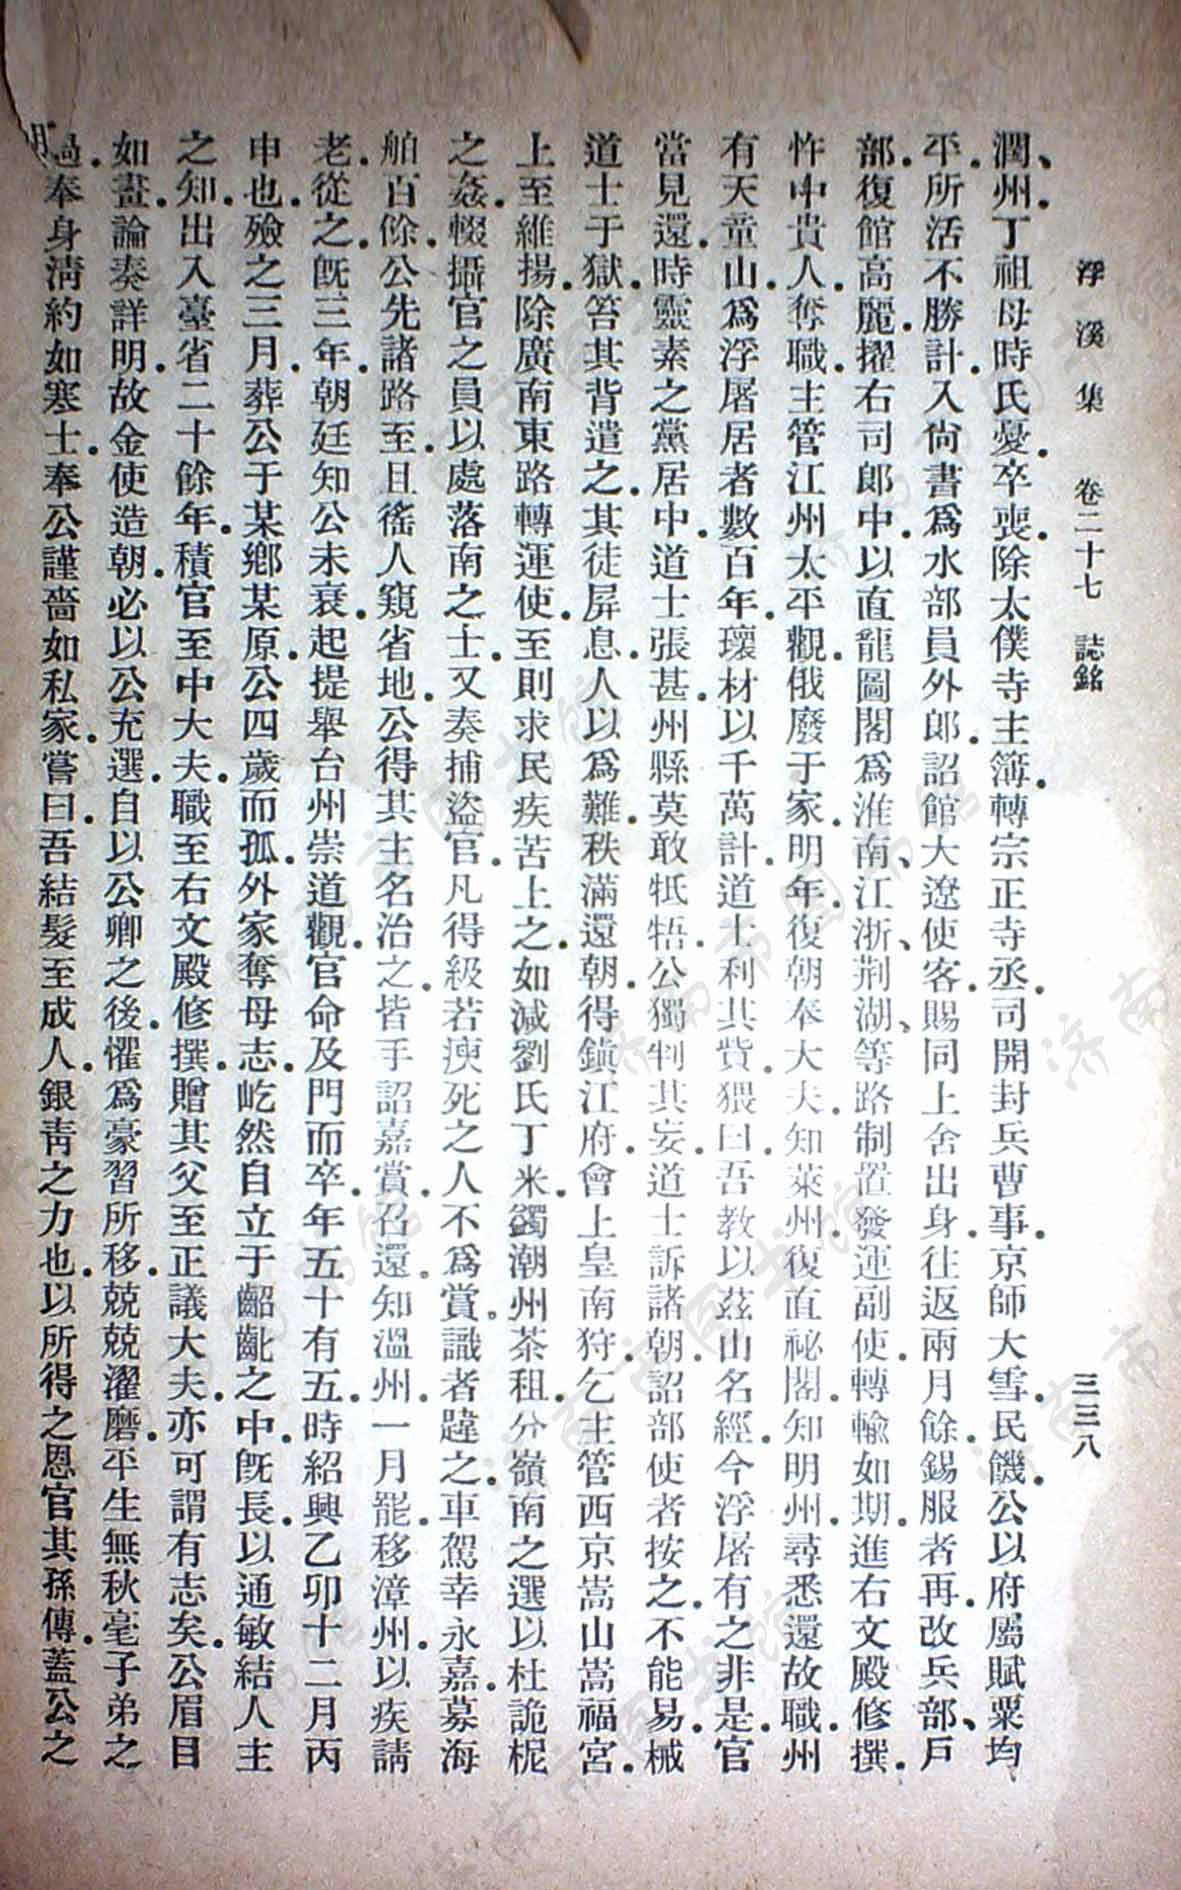 浮溪集 卷二十七 誌銘 三三八
潤、州.丁祖母時氏憂.卒喪.除太僕寺主簿.轉宗正寺丞.司開封兵曹事.京師大雪.民饑.公以府屬賦粟均
平.所活不勝計.入尙書爲水部員外郎.詔館大遼使客.賜同上舍出身.往返兩月餘.錫服者再.改兵部、戶
部.復館高麗.擢右司郎中.以直龍圖閣爲淮南、江浙、荆湖、等路制置發運副使.轉輸如期.進右文殿修撰.
忤中貴人.奪職.主管江州太平觀.俄廢于家.明年.復朝奉大夫.知萊州.復直祕閣.知明州.尋悉還故職.州
有天童山.爲浮屠居者數百年.瓌材以千萬計.道士利其貲.猥曰.吾教以茲山名經.今浮屠有之非是.官
當見還.時靈素之黨居中.道士張甚.州縣莫敢牴牾.公獨判其妄.道士訴諸朝.詔部使者按之.不能易.械
道士于獄.笞其背遣之.其徒屏息.人以爲難.秩滿還朝.得鎮江府.會上皇南狩.乞主管西京嵩山嵩福宮.
上至維揚.除廣南東路轉運使.至則求民疾苦上之.如減劉氏丁米.蠲潮州茶租.分嶺南之選.以杜詭柅
之姦.輟攝官之員.以處落南之士.又奏捕盜官.凡得級若瘐死之人.不爲賞.識者韙之.車駕幸永嘉.募海
舶百餘.公先諸路至.且徭人窺省地.公得其主名治之.皆手詔嘉賞.召還.知溫州.一月罷.移漳州.以疾請
老.從之.旣三年.朝廷知公未衰.起提舉台州崇道觀.官命及門而卒.年五十有五.時紹興乙卯十二月丙
申也.殮之三月.葬公于某鄉某原.公四歲而孤.外家奪母志.屹然自立于齠齔之中.旣長.以通敏結人主
之知.出入臺省二十餘年.積官至中大夫.職至右文殿修撰.贈其父至正議大夫.亦可謂有志矣.公眉目
如畫.論奏詳明.故金使造朝.必以公充選.自以公卿之後.懼爲豪習所移.兢兢濯磨.平生無秋毫子弟之
過.奉身淸約如寒士.奉公謹嗇如私家.嘗曰.吾結髮至成人.銀靑之力也.以所得之恩官其孫傳.蓋公之